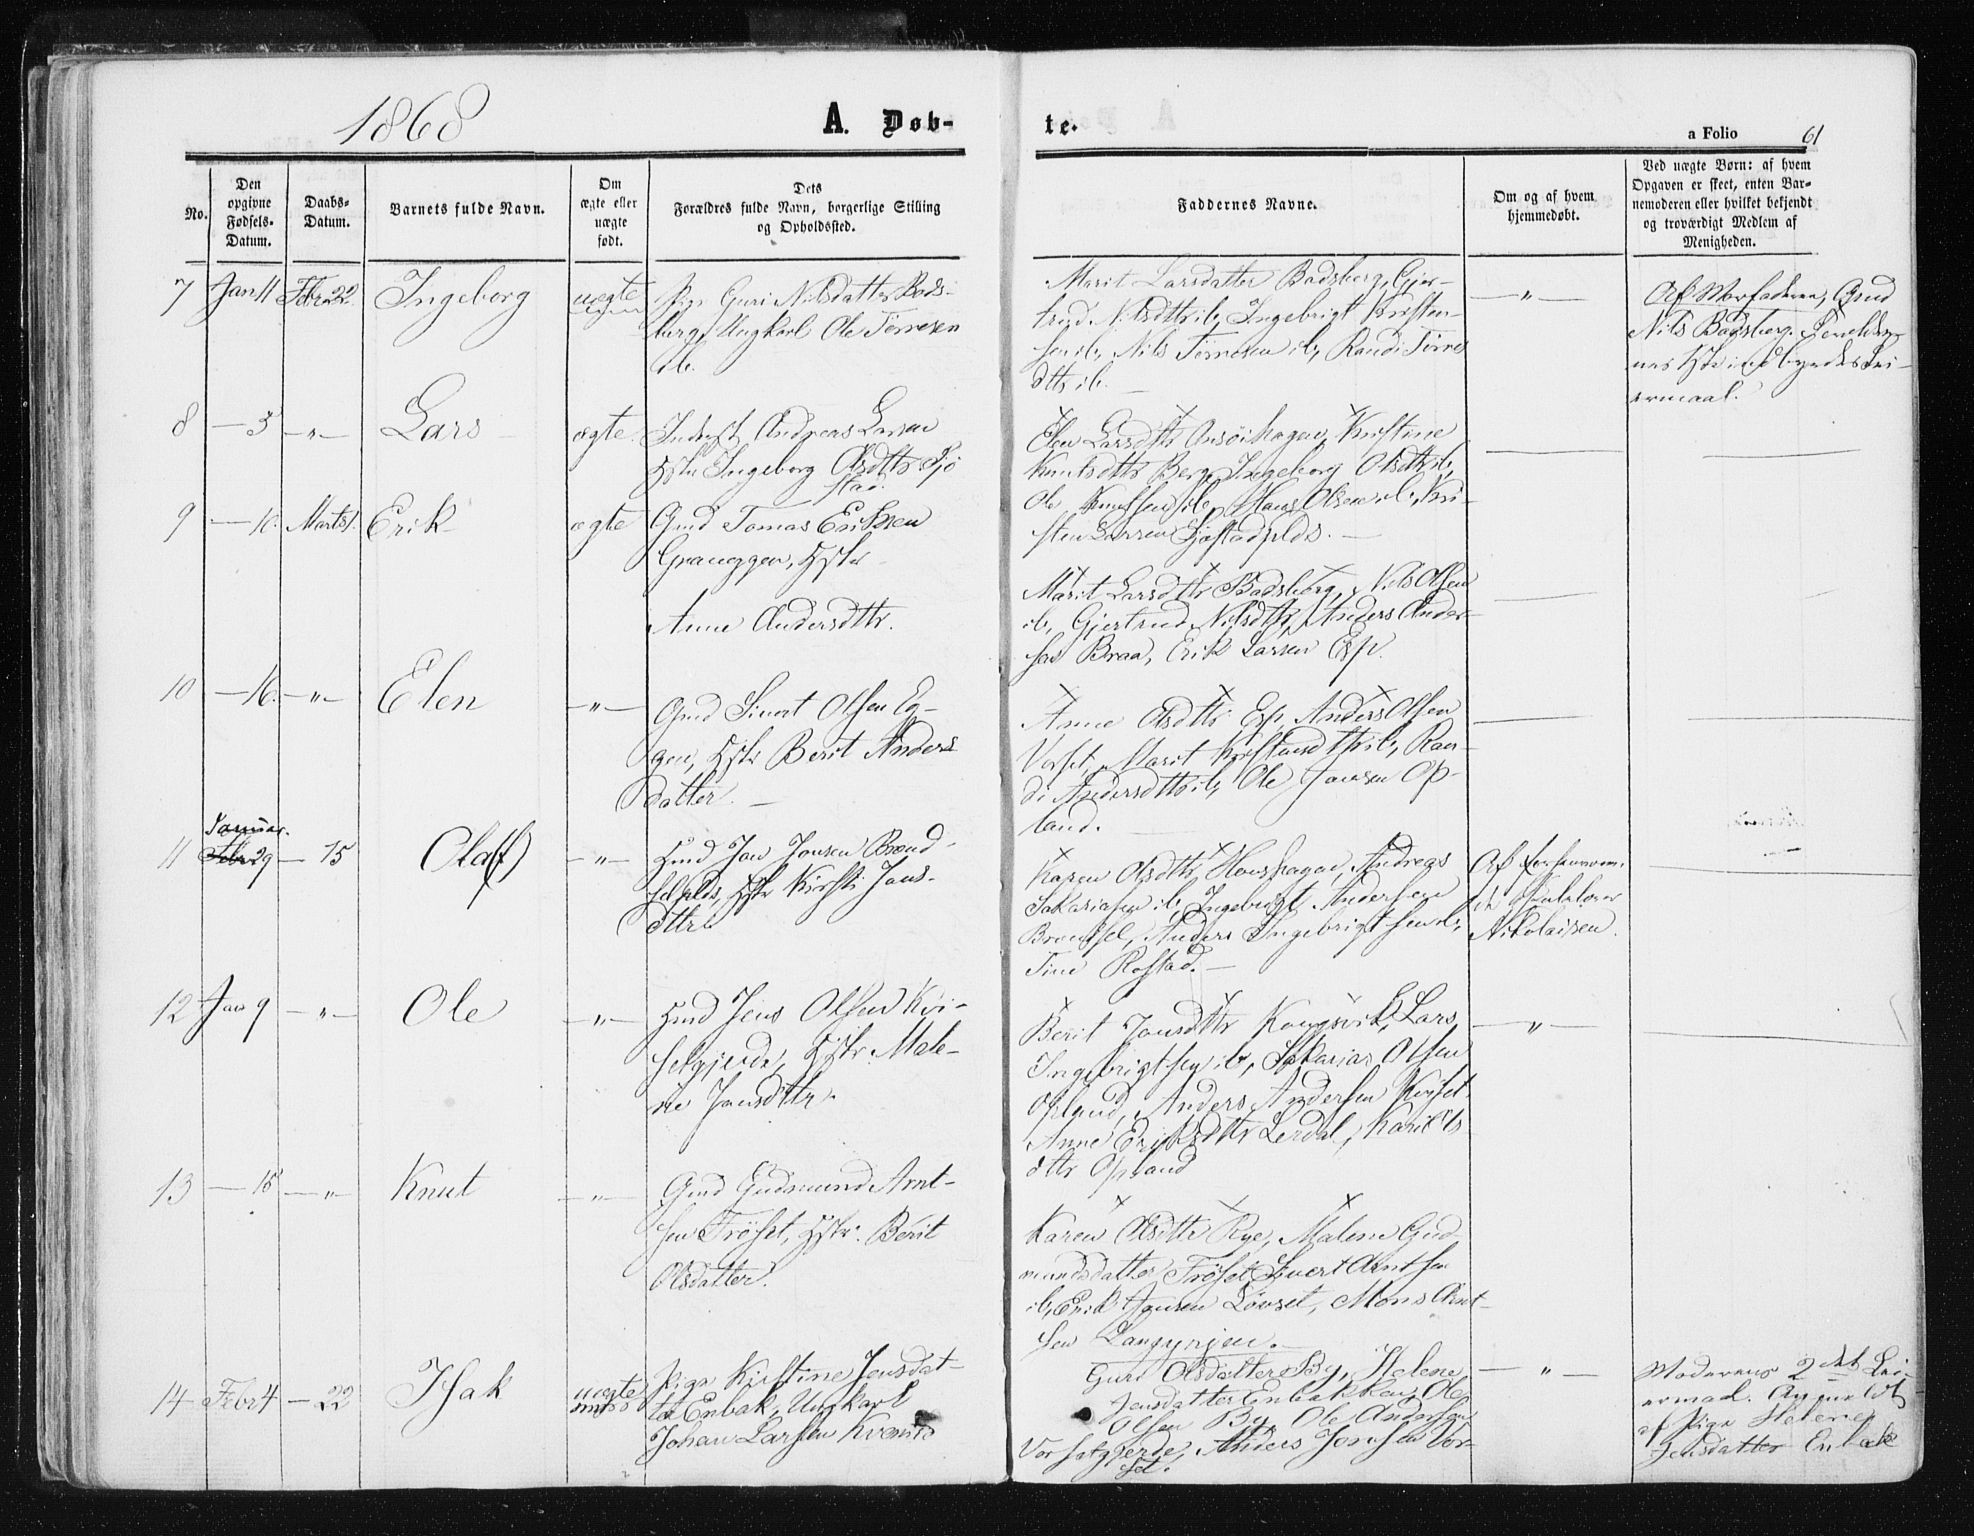 1868
A. Døb-
te.
a Folio 61
No.
Den opgivne Fødsels-Datum.
Daabs-Datum.
Barnets fulde Navn.
Om ægte eller uægte født.
Dets Forældres fulde Navn, borgerlige Stilling og Opholdssted.
Faddernes Navne.
Om og af hvem hjemmedøbt.
Ved uægte Børn: af hvem Opgaven er skeet, enten Barnemoderen eller hvilket bekjendt og troværdigt Medlem af Menigheden.
7 Jan 11 Febr 22 Ingeborg uægte
Pige Guri Nilsdatter Bads-
berg, Ungkarl Ole Tørresen
ib.
Marit Larsdatter Badsberg, Gjer-
trud Nilsdttr ib, Ingebrigt Kristen-
sen ib, Nils Tørresen ib, Randi Tørres
dttr ib.
— " —
Af Morfaderen, Gmd
Nils Badsberg. Forældre-
nes
ermaal.
8 — 3 — " — Lars ægte
Indryst Andreas Larsen
Hstr Ingeborg Olsdttr Sjø
stad.
Elen Larsdttr Kristine
Knutsdttr Berg, Ingeborg Olsdttr ib,
Ole Knutsen ib, Hans Olsen ib, Kri-
sten Larsen Sjøstadplds. —
9 — 10. Marts 1. Erik ægte
Gmd Tomas Eriksen
Graneggen, Hstr
Anne Andersdttr.
Marit Larsdttr Badsberg, Nils Olsen
ib, Gjertrud Nilsdttr, Anders Ander-
sen Braa, Erik Larsen Esp.
10 — 16. — " — Elen — " —
Gmd Sivert Olsen Eg-
gen, Hstr Berit Anders
datter. —
Anne Olsdttr Esp, Anders Olsen
Vorset, Marit Kristensdttr ib, Ran-
di Andersdttr ib, Ole Jonsen Op-
land.
Januar.
11 Febr 29 — 15 Ola(f) — " —
Hmd Jon Jonsen Brønd-
selplds, Hstr Kirsti Jons-
dttr
Karen Olsdttr Andreas
Sakariasen ib, Ingebrigt Andersen
Brøndsel, Anders Ingebrigtsen ib,
Tine Rostad. —
Af
Skolelærer
Nikolaisen.
12 Jan 9 — " — Ole — " —
Hmd Jens Olsen Kvi-
setgjerde, Hstr. Male-
ne Jonsdttr.
Berit Jonsdttr Kongsvik, Lars
Ingebrigtsen ib, Sakarias Olsen
Opland, Anders Andersen Kviset
Anne Eriksdttr Lerdal, Kari Ols
dttr Opland
— " —
13 — 15 — " — Knut — " —
Gmd Gudmund Arnt-
sen Frøset, Hstr. Berit
Olsdatter.
Karen Olsdttr Rye, Malene Gud-
mundsdatter Frøset, Sivert Arntsen
ib, Erik Jonsen Løvset, Mons Arnt-
sen Langørgen. —
14 Febr 4 — 22 Isak uægte
Pige Kirstine Jensdat-
ter Enbak, Ungkarl
Johan Larsen
Guri Olsdatter By, Helene
Jensdatter Enbakken, Ole
Olsen By, Ole Andersen
Vorsetgjerde, Anders Jonsen Vor-
set.
— " —
Moderens 2det Lei-
ermaal. Anmeldt
af Pige Helene
Jensdatter Enbak